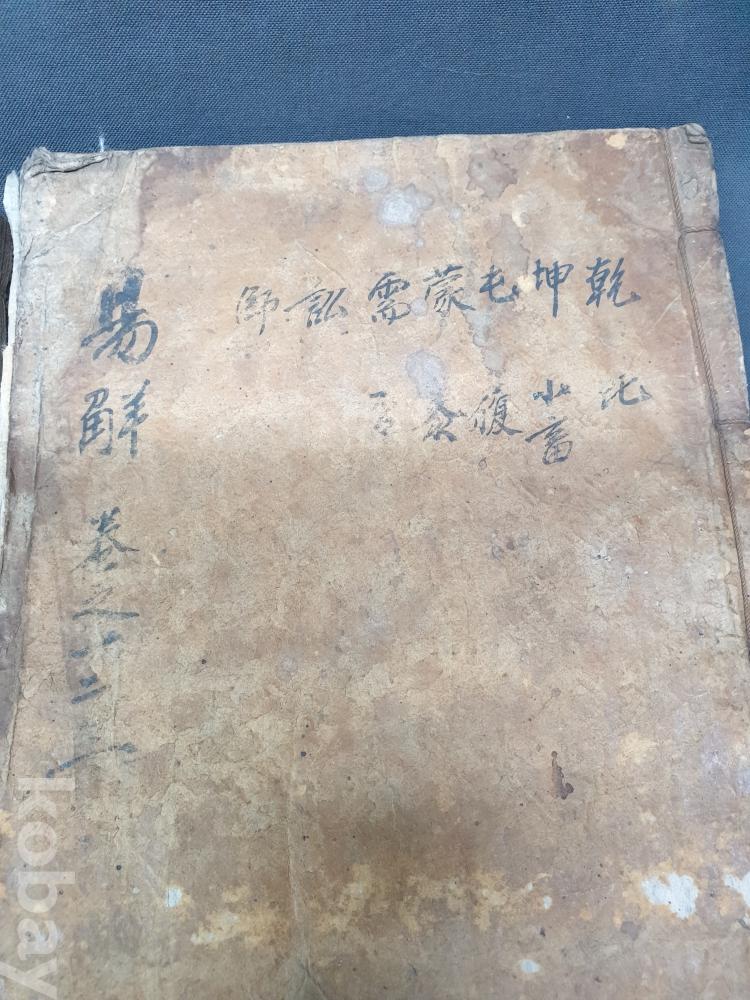 乾坤屯蒙需訟師
比小畜履泰否
易觧 卷之一二三
kobay